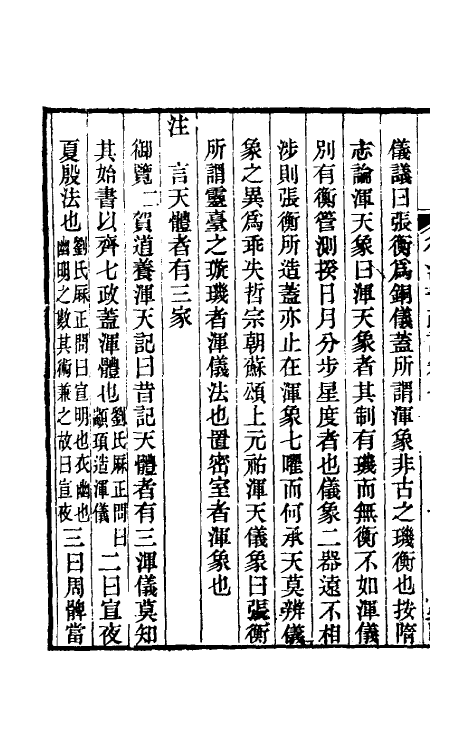 儀議曰張衡爲銅儀蓋所謂渾象非古之璣衡也按隋
志論渾天象曰渾天象者其制有璣而無衡不如渾儀
別有衡管測揆日月分步星度者也儀象二器遠不相
涉則張衡所造蓋亦止在渾象七曜而何承天莫辨儀
象之異爲乖失哲宗朝蘇頌上元祐渾天儀象曰張衡
所謂靈臺之璇璣者渾儀法也置密室者渾象也
注　言天體者有三家
御覽二賀道養渾天記曰昔記天體者有三渾儀莫知
其始書以齊七政蓋渾體也劉氏厤正問曰顓頊造渾儀二曰宣夜
夏殷法也劉氏厤正問曰宣明也夜幽也幽明之數其術兼之故曰宣夜三曰周髀當